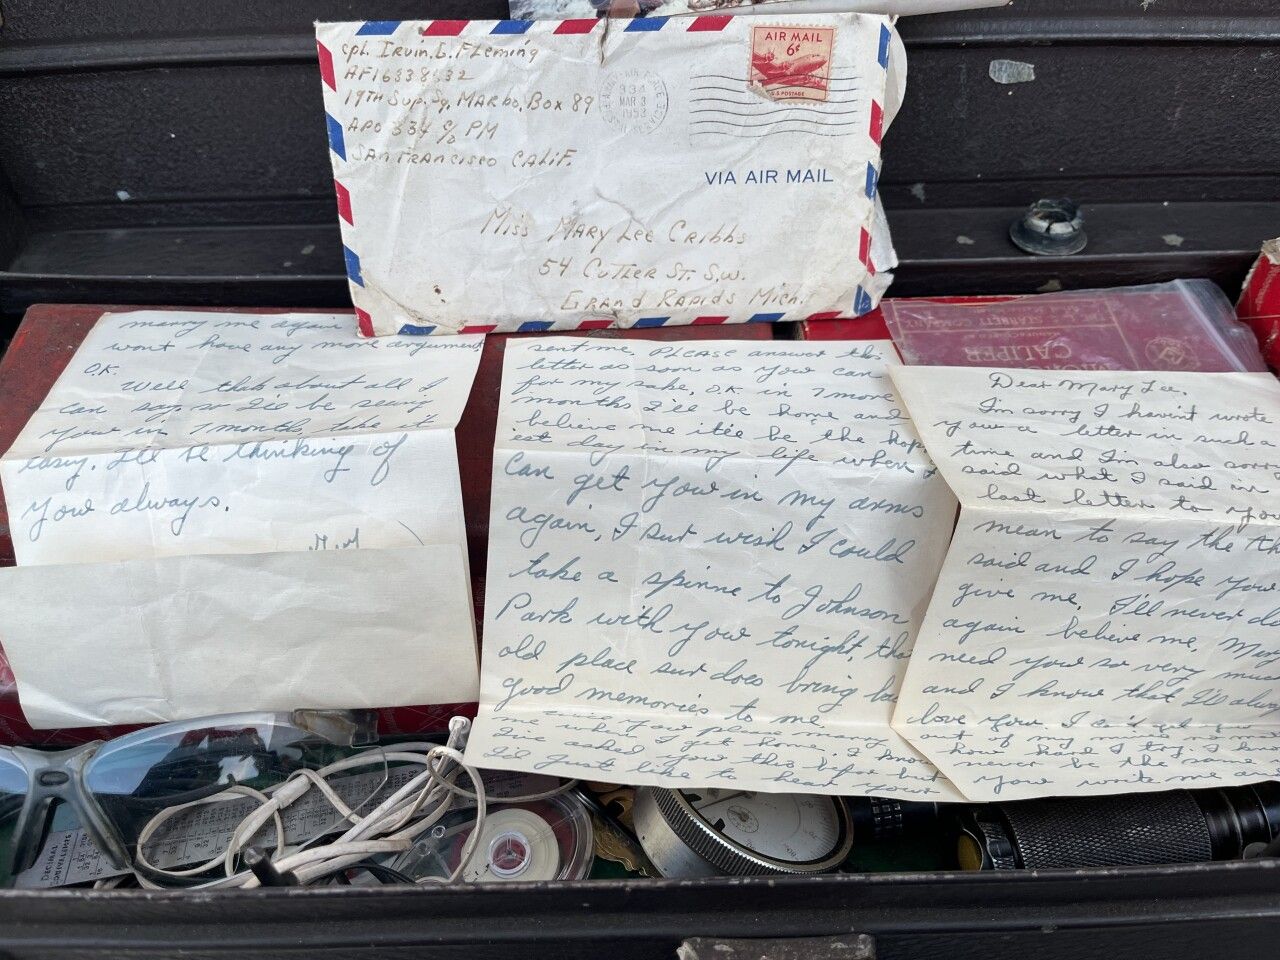 Cpl. Irvin. L. Fleming
19TH Sup. Sq. MARbo, Box 89
APO 334 c/o PM
SAN FRANCISCO CALIF.
AIR MAIL
6¢
U.S. POSTAGE
334
MAR 3
1953
VIA AIR MAIL
Miss Mary Lee Cribbs
54 Cutler St. S.W.
Grand Rapids Mich.
Dear Mary Lee,
I'm sorry I havent wrote
you a letter in such a
time and I'm also sorry
said what I said in
last letter to you
mean to say the
said and I hope you
give me, I'll never do
again believe me, Mary
need you so very much
and I know that I'll always
love you, I can't get you
out of my mind no
how hard I try. I know
never be the same
you write me
sent me. PLEASE answer this
letter as soon as you can
for my sake, O.K. in 7 more
months I'll be home and
believe me it'll be the happ
iest day in my life when I
can get you in my arms
again, I sur wish I could
take a spinne to Johnson
Park with you tonight, that
old place sur does bring back
good memories to me
you please marry
me when I get home, I know
I've asked you this before but
I'd just like to hear your
marry me again
wont have any more argument
O.K.
Well thats about all I
can say, so I'll be seeing
you in 7 months, take it
easy. I'll be thinking of
you always.
STARRETT
MICROMETER
CALIPER
DECIMAL
EQUIVALENTS